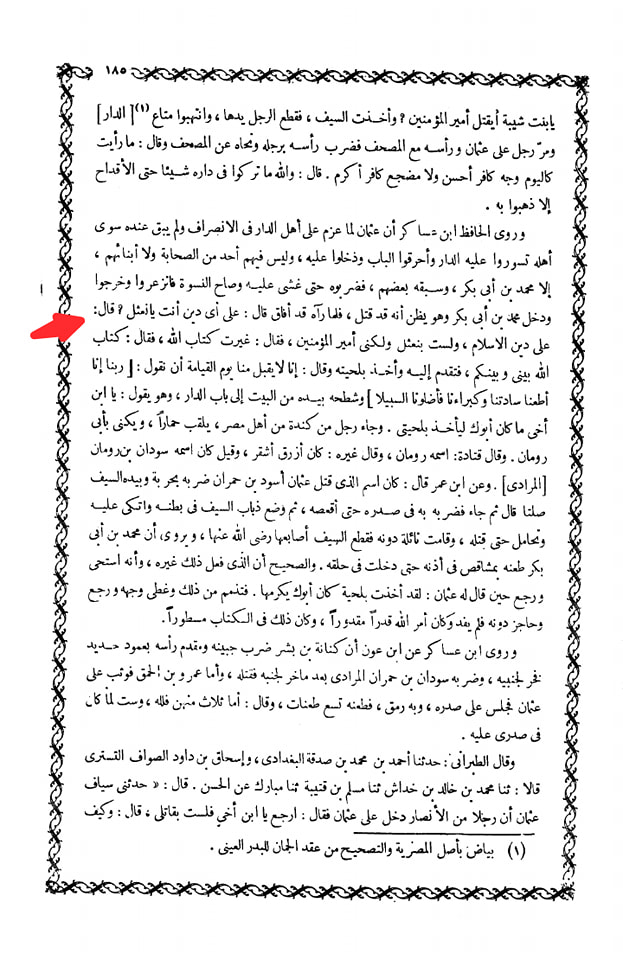 ١٨٥
يابنت شيبة أيقتل أمير المؤمنين ؟ وأخذت السيف ، فقطع الرجل يدها ، وانتهبوا متاع (١) [ الدار ]
ومرّ رجل على عثمان ورأسه مع المصحف فضرب رأسه برجله ونحاه عن المصحف وقال : ما رأيت
كاليوم وجه كافر أحسن ولا مضجع كافر أكرم . قال : والله ما تركوا فى داره شيئا حتى الأقداح
إلا ذهبوا به .
وروى الحافظ ابن عساكر أن عثمان لما عزم على أهل الدار فى الانصراف ولم يبق عنده سوى
أهله تسوروا عليه الدار وأحرقوا الباب ودخلوا عليه ، وليس فيهم أحد من الصحابة ولا أبنائهم ،
إلا محمد بن أبى بكر ، وسبقه بعضهم ، فضربوه حتى غشى عليه وصاح النسوة فانزعروا وخرجوا
ودخل محمد بن أبى بكر وهو يظن أنه قد قتل ، فلما رآه قد أفاق قال : على أى دين أنت يانعثل ؟ قال :
على دين الاسلام ، ولست بنعثل ولكنى أمير المؤمنين ، فقال : غيرت كتاب الله ، فقال : كتاب
الله بينى وبينكم ، فتقدم إليه وأخذ بلحيته وقال : إنا لايقبل منا يوم القيامة أن نقول : [ ربنا إنا
أطعنا سادتنا وكبراءنا فأضلونا السبيلا ] وشطحه بيده من البيت إلى باب الدار ، وهو يقول : يا ابن
أخى ما كان أبوك ليأخذ بلحيتى . وجاء رجل من كندة من أهل مصر ، يلقب حماراً ، ويكنى بأبى
رومان . وقال قتادة: اسمه رومان ، وقال غيره : كان أزرق أشقر ، وقيل كان اسمه سودان بن رومان
[المرادى] . وعن ابن عمر قال : كان اسم الذى قتل عثمان أسود بن حمران ضربه بحربة وبيده السيف
صلتا قال ثم جاء فضربه به فى صدره حتى أقعصه ، ثم وضع ذباب السيف فى بطنه واتكى عليه
وتحامل حتى قتله ، وقامت نائلة دونه فقطع السيف أصابعها رضى الله عنها ، ويروى أن محمد بن أبى
بكر طعنه بمشاقص فى أذنه حتى دخلت فى حلقه . والصحيح أن الذى فعل ذلك غيره ، وأنه استحى
ورجع حين قال له عثمان : لقد أخذت بلحية كان أبوك يكرمها . فتذمم من ذلك وغطى وجهه ورجع
وحاجز دونه فلم يفد وكان أمر الله قدراً مقدوراً ، وكان ذلك فى الكتاب مسطوراً .
وروى ابن عساكر عن ابن عون أن كنانة بن بشر ضرب جبينه ومقدم رأسه بعمود حديد
فخر لجنبيه ، وضربه سودان بن حمران المرادى بعد ماخر لجنبه فقتله ، وأما عمرو بن الحمق فوثب على
عثمان فجلس على صدره ، وبه رمق ، فطعنه تسع طعنات ، وقال : أما ثلاث منهن فلله ، وست لما كان
فى صدرى عليه .
وقال الطبرانى: حدثنا أحمد بن محمد بن صدقة البغدادى ، وإسحاق بن داود الصواف التسترى
قالا : ثنا محمد بن خالد بن خداش ثنا مسلم بن قتيبة ثنا مبارك عن الحسن . قال : « حدثنى سياف
عثمان أن رجلا من الأنصار دخل على عثمان فقال : ارجع يا ابن أخى فلست بقاتلى ، قال : وكيف
(١) بياض بأصل المصرية والتصحيح من عقد الجمان للبدر العينى .